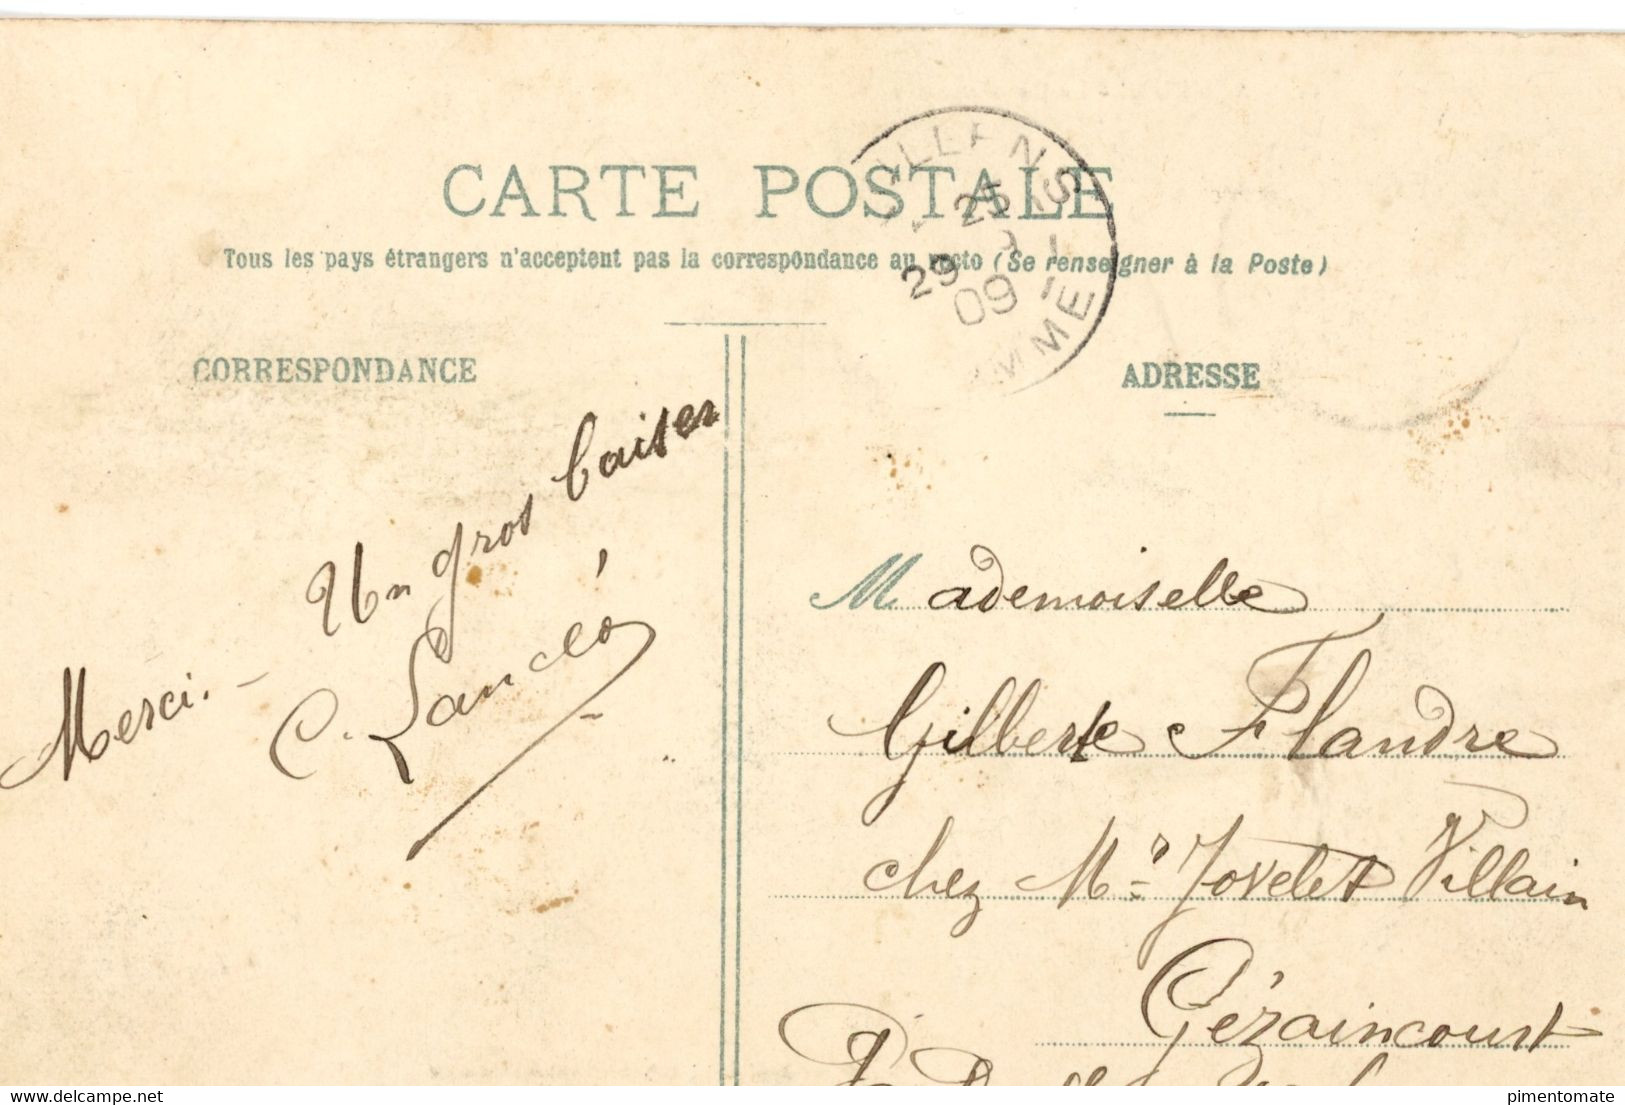 CARTE POSTALE
Tous les pays étrangers n'acceptent pas la correspondance au recto (Se renseigner à la Poste)
CORRESPONDANCE
Merci. - Un gros baiser
C. Lancéo
ADRESSE
Mademoiselle
Gilberte Flandre
chez Mr Jovelet Villain
Gézaincourt
25
29
09
www.delcampe.net
pimentomate